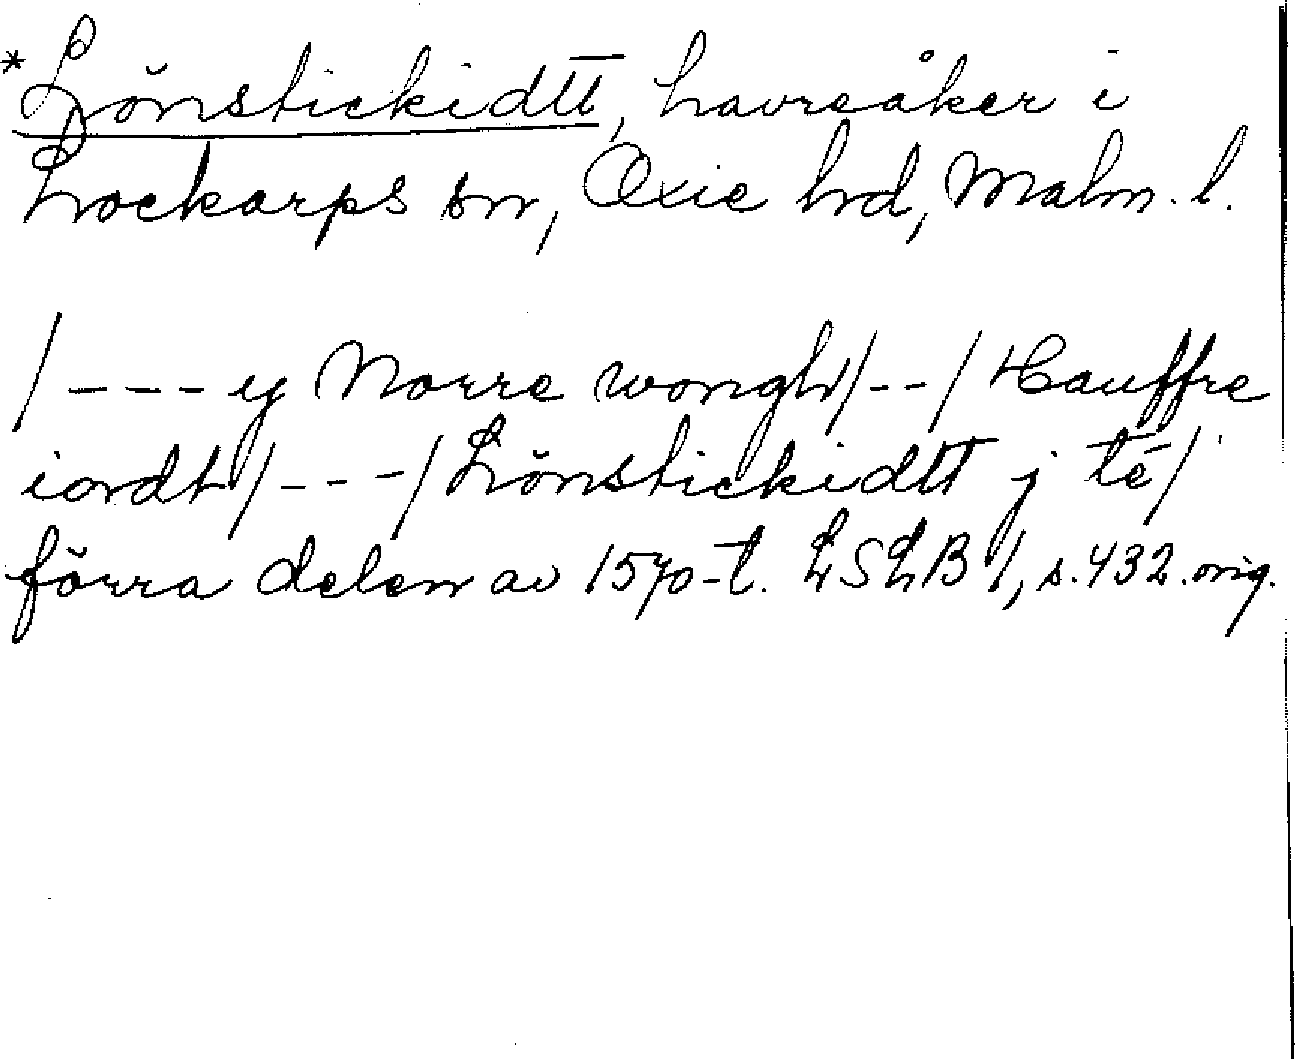 *Lönstickidtt, havreåker i
Lockarps sn, Oxie hd, Malm. l.
/---y Norre wongh/--/Hauffre
iordt/---/Lönstickidtt j té/
förra delen av 1570-t. LSLB 1, s. 432. orig.